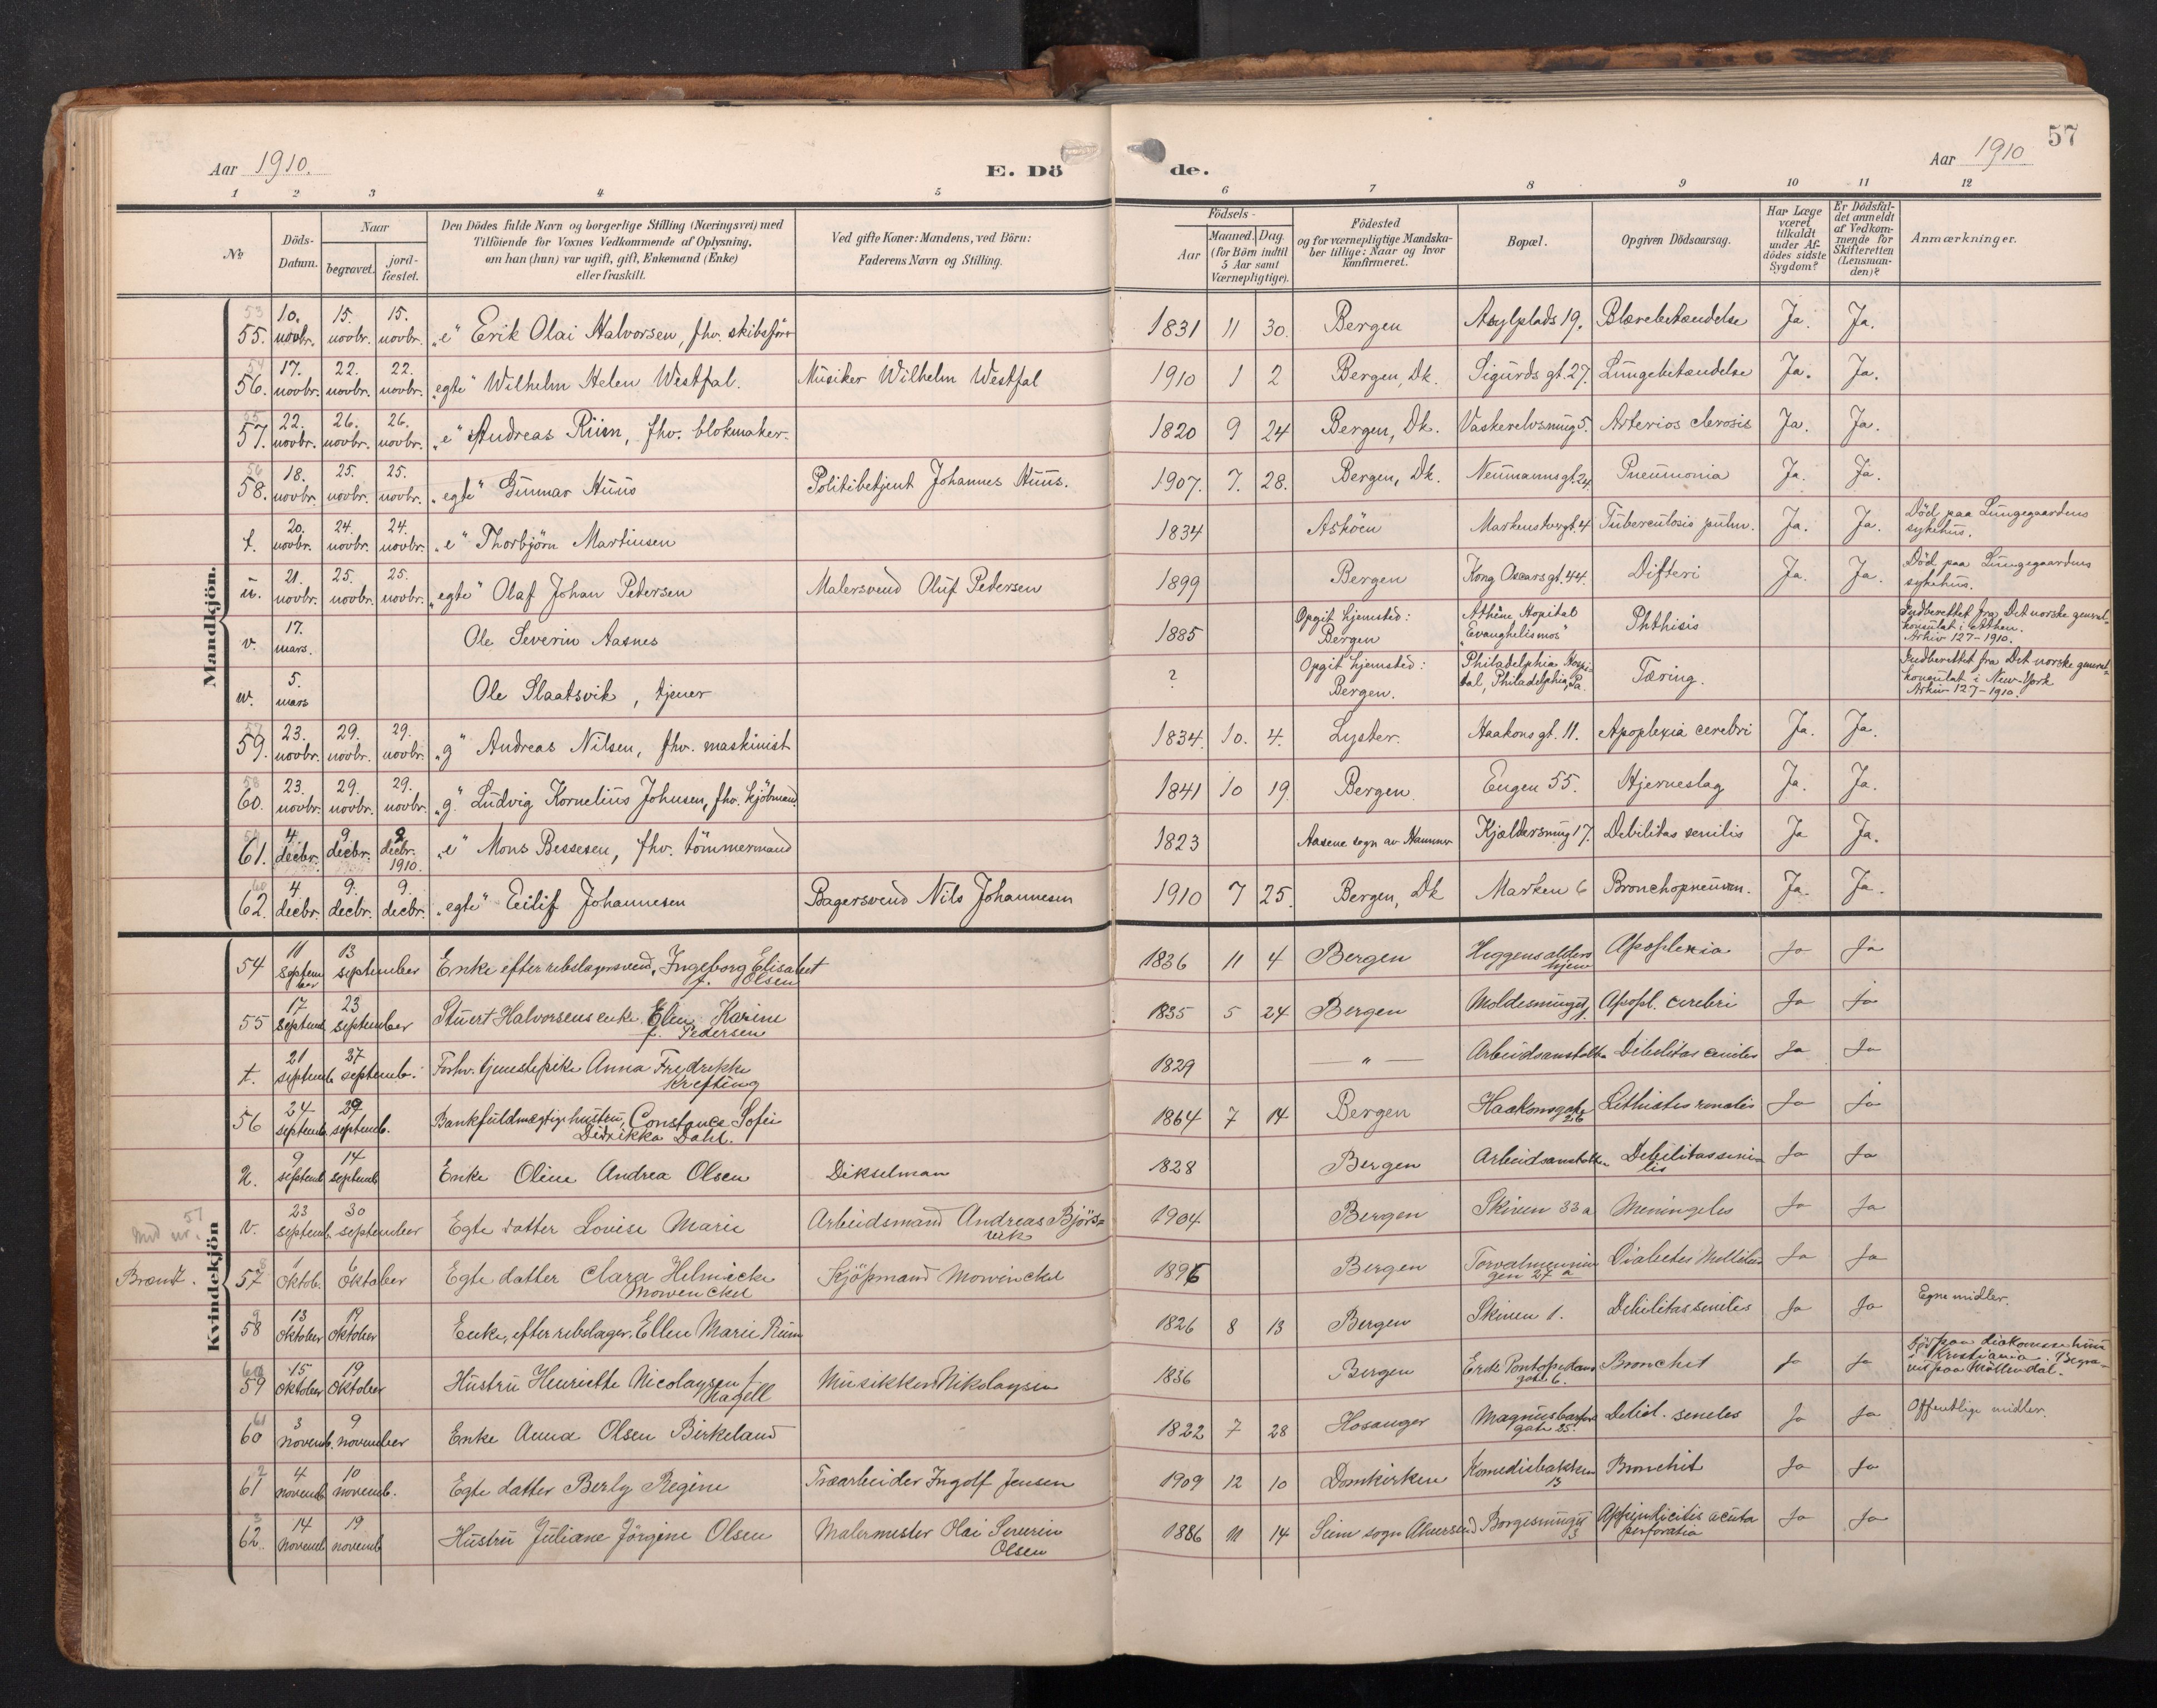 57
Aar 1910. E. Dö de. Aar 1910
1 2 3 4 5 6 7 8 9 10 11 12
No
Döds-Datum.
Naar
begravet.
jord-fæstet.
Den Dödes fulde Navn og borgerlige Stilling (Næringsvei) med
Tilföiende for Voxnes Vedkommende af Oplysning,
om han (hun) var ugift, gift, Enkemand (Enke)
eller fraskilt.
Ved gifte Koner: Mandens, ved Börn:
Faderens Navn og Stilling.
Födsels-
Aar
Maaned. Dag.
(for Börn indtil
5 Aar samt
Værnepligtige).
Födested
og for værnepligtige Mandska-
ber tillige: Naar og hvor
konfirmeret.
Bopæl.
Opgiven Dödsaarsag.
Har Læge
været
tilkaldt
under Af-
dödes sidste
Sygdom?
Er Dödsfal-
det anmeldt
af Vedkom-
mende for
Skifteretten
(Lensman-
den)?
Anmærkninger.
Mandkjön.
53 55. 10. novbr. 15. novbr. 15. novbr. "e" Erik Olai Halvorsen, fhv. skibsförer 1831 11 30. Bergen Asylplads 19. Blærebetændelse Ja. Ja.
54 56. 17. novbr. 22. novbr. 22. novbr. "egte" Wilhelm Helen Westfal. Musiker Wilhelm Westfal 1910 1 2 Bergen, Dk. Sigurds gt. 27. Lungebetændelse Ja. Ja.
55 57. 22. novbr. 26. novbr. 26. novbr. "e" Andreas Riim, fhv. blokmaker. 1820 9 24 Bergen, Dk. Vaskerelvsmug 5. Arterios clerosis Ja. Ja.
56 58. 18. novbr. 25. novbr. 25. novbr. "egte" Gunnar Huus Politibetjent Johannes Huus. 1907. 7. 28. Bergen, Dk. Neumannsgt. 24. Pneumonia Ja. Ja.
t. 20. novbr. 24. novbr. 24. novbr. "e" Thorbjørn Martinsen 1834 Asköen Markens tvergt. 4 Tuberculosis pulm. Ja. Ja. Död paa Lungegaardens
sykehus.
u. 21. novbr. 25. novbr. 25. novbr. "egte" Olaf Johan Pedersen Malersvend Oluf Pedersen 1899 Bergen Kong Oscars gt. 44. Difteri Ja. Ja. Död paa Lungegaardens
sykehus.
v. 17. mars. Ole Severin Aasnes 1885 Opgit hjemsted:
Bergen Athêne Hopital
"Evanghelismos" Phthisis Indberettet fra Det norske general-
konsulat i Athen.
Arkiv 127-1910.
w. 5. mars Ole Slaatsvik, tjener ? Opgit hjemsted:
Bergen. Philadelphia Hospi-
tal, Philadelphia, Pa. Tæring. Indberettet fra Det norske general-
konsulat i New-York
Arkiv 127-1910.
57 59. 23. novbr. 29. novbr. 29. novbr. "g" Andreas Nilsen, fhv. maskinist 1834. 10. 4. Lyster. Haakons gt. 11. Apoplexia cerebri Ja. Ja.
58 60. 23. novbr. 29. novbr. 29. novbr. "g." Ludvig Kornelius Johnsen, fhv. kjöbmand 1841 10 19. Bergen. Engen 55. Hjerneslag Ja. Ja.
59 61. 4. decbr. 9 decbr. 9 decbr. 1910. "e" Mons Bessesen, fhv. tömmermand 1823 Aasene sogn av Hammer Kjældersmug 17. Debilitas senilis Ja Ja.
60 62. 4. decbr. 9. decbr. 9. decbr. "egte" Eilif Johannesen Bagersvend Nils Johannesen 1910 7 25. Bergen, Dk Marken 6 Bronchopneumon. Ja. Ja.
Kvindekjön
54 11 september 13 september Enke efter rebslagersvend, Ingeborg Elisabet
f. Olsen 1836 11 4 Bergen Heggens alders
hjem Apoplexia Ja Ja
55 17 septemb. 23 september Stuert Halvorsens enke Elen Karine
f. Pedersen 1835 5 24 Bergen Moldesmuget
1. Apopl. cerebri Ja Ja
t. 21 septemb. 27 septemb. Forhv. tjenestepike Anna Fredrikke
Krefting 1829 — " — Arbeidsanstalten Debilitas senilis Ja Ja
56 24 septemb. 29 septemb. Bankfuldmægtigs hustru, Constance Sofie
Didrikka Dahl. 1864 7 14 Bergen Haakonsgate
26 Lithistis renalis Ja Ja
u. 9 septemb. 14 septemb Enke Oline Andrea Olsen Dikselman 1828 Bergen Arbeidsanstalten Debilitas seni-
lis Ja Ja
Med nr. 57 v. 23 septemb. 30 september Egte datter Lovise Marie Arbeidsmand Andreas Bjørs-
vik 1904 Bergen Skiven 33 a Meningeles Ja Ja
Brandt. 57 8 1 Oktob. 6 Oktober Egte datter Clara Helmicke
Mowinckel Kjöpmand Mowinckel 1896 Bergen Torvalmenin
gen 27 a Diabetes Mellitus Ja Ja
58 9 13 Oktober 19 Oktober Enke, efter rebslager. Ellen Marie Riim 1826 8 13 Bergen Skiven 1. Debilitas senilis Ja Ja Egne midler.
59 60 15 Oktober 19 Oktober Hustru Henriette Nicolaysen f.
Nagell Musikker Nikolaysen 1836 Bergen Erik Pontopidans
gate 6. Bronchit Ja Ja Död paa diakonissehuus
i Kristiania. Begra-
vet paa Möllendal.
60 61 3 novemb. 9 november Enke Anna Olsen Birkeland 1822 7 28 Hosanger Magnusbarfots
gate 25. Debil. seneles Ja Ja Offentlige midler.
61 2 4 novemb. 10 novemb. Egte datter Berly Regine Træarbeider Ingolf Jensen 1909 12 10 Domkirken Komediebakken
13 Bronchit Ja Ja
62. 3 14 Novemb 19 novemb Hustru Juliane Jörgine Olsen Malermester Olai Severin
Olsen 1886 11 14 Seim sogn Alversund Borgesmuget
3 Appindicitis acuta
perforatia Ja Ja